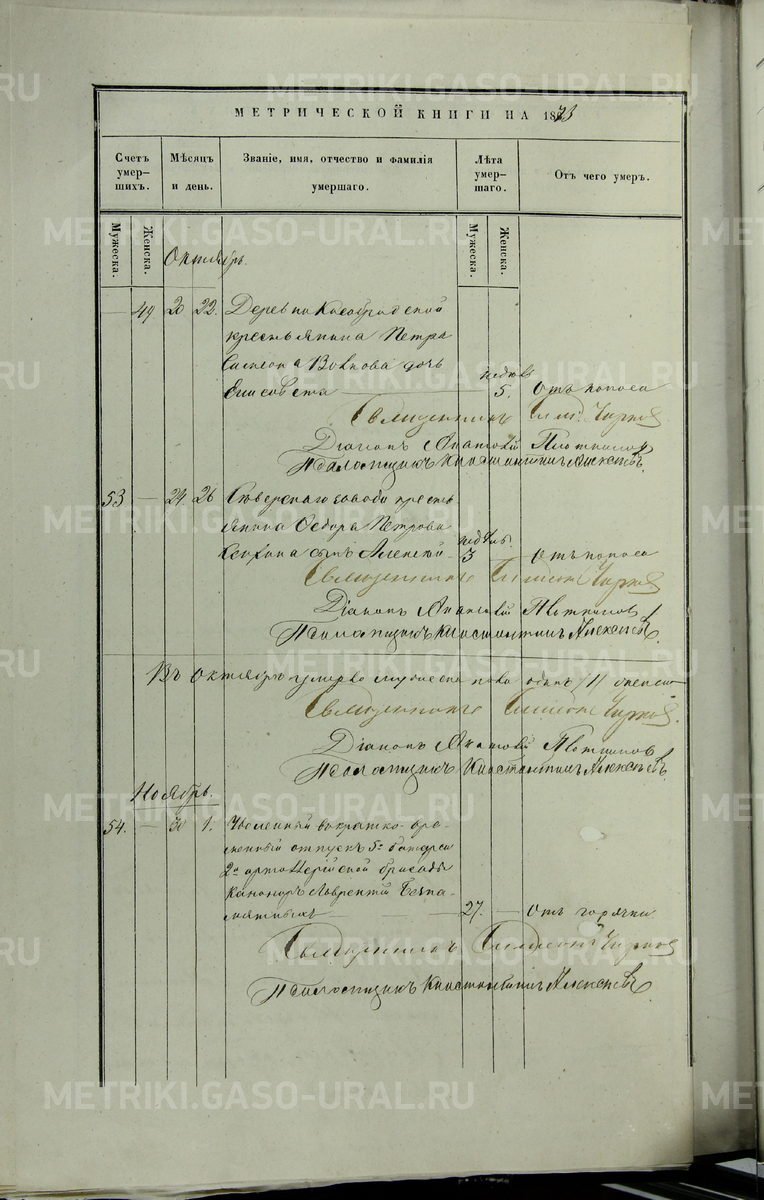 METRIKI.GASO-URAL.RU
МЕТРИЧЕСКОЙ КНИГИ НА 1873
Счетъ умер-
шихъ.
Мѣсяцъ
и день.
Званіе, имя, отчество и фамилія
умершаго.
Лѣта
умер-
шаго.
Отъ чего умеръ.
Мужеска.
Женска.
Мужеска.
Женска.
Октябрь.
— 49 20 22. Деревни Кособродской
крестьянина Петра
Волкова дочь недѣль
Елисовета 5. Отъ поноса
Священникъ Чирковъ
Діаконъ Плотниковъ
Псаломщикъ Константинъ Алексѣевъ.
53 — 24. 26 Сѣверскаго завода кресть
янина Ѳедора Петрова недѣль.
сынъ Алексѣй 3 — Отъ поноса
Священникъ Симеонъ Чирковъ
Діаконъ Плотниковъ
Псаломщикъ Константинъ Алексѣевъ
Въ Октябрѣ умерло мужеска пола одинъ /1/ женска
Священникъ Симеонъ Чирковъ.
Діаконъ Плотниковъ
Псаломщикъ Константинъ Алексѣевъ.
Ноябрь.
54. — 30 1. Уволенный въ кратко-вре-
менный отпускъ 5й батареи
2й артиллерійской бригады
Канониръ Лаврентій Безпа-
мятныхъ 27. — Отъ горячки
Священникъ Симеонъ Чирковъ
Псаломщикъ Константинъ Алексѣевъ
METRIKI.GASO-URAL.RU